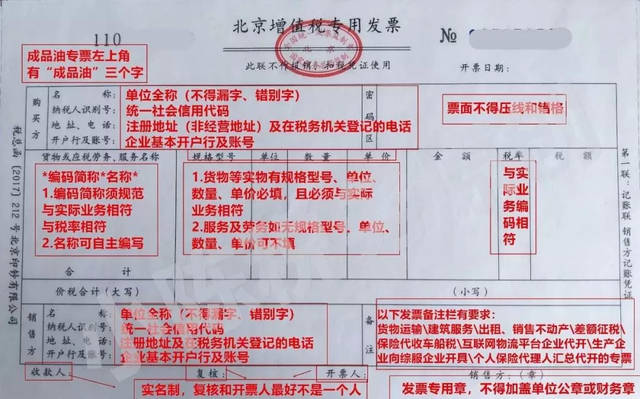 北京增值税专用发票
110
№
此联不作报销、扣税凭证使用
开票日期：
成品油专票左上角
有“成品油”三个字
购买方
名　　称：
纳税人识别号：
地址、电话：
开户行及账号：
单位全称（不得漏字、错别字）
统一社会信用代码
注册地址（非经营地址）及在税务机关登记的电话
企业基本开户行及账号
密码区
票面不得压线和错格
货物或应税劳务、服务名称 规格型号 单位 数量 单价 金额 税率 税额
*编码简称*名称*
1.编码简称须规范
与实际业务相符
与税率相符
2.名称可自主编写
1.货物等实物有规格型号、单位、
数量、单价必填，且必须与实际
业务相符
2.服务及劳务如无规格型号、单位、
数量、单价可不填
与实际业务编码相符
合计
价税合计（大写）
（小写）
销售方
名　　称：
纳税人识别号：
地址、电话：
开户行及账号：
单位全称（不得漏字、错别字）
统一社会信用代码
注册地址及在税务机关登记的电话
企业基本开户行及账号
备注
以下发票备注栏有要求：
货物运输\建筑服务\出租、销售不动产\差额征税\
保险代收车船税\互联网物流平台企业代开\生产企
业向综服企业开具\个人保险代理人汇总代开的专票
收款人：
复核：
开票人：
销售方：（章）
实名制，复核和开票人最好不是一个人
发票专用章，不得加盖单位公章或财务章
税总函〔2017〕212号北京印钞有限公司
第一联：记账联 销售方记账凭证